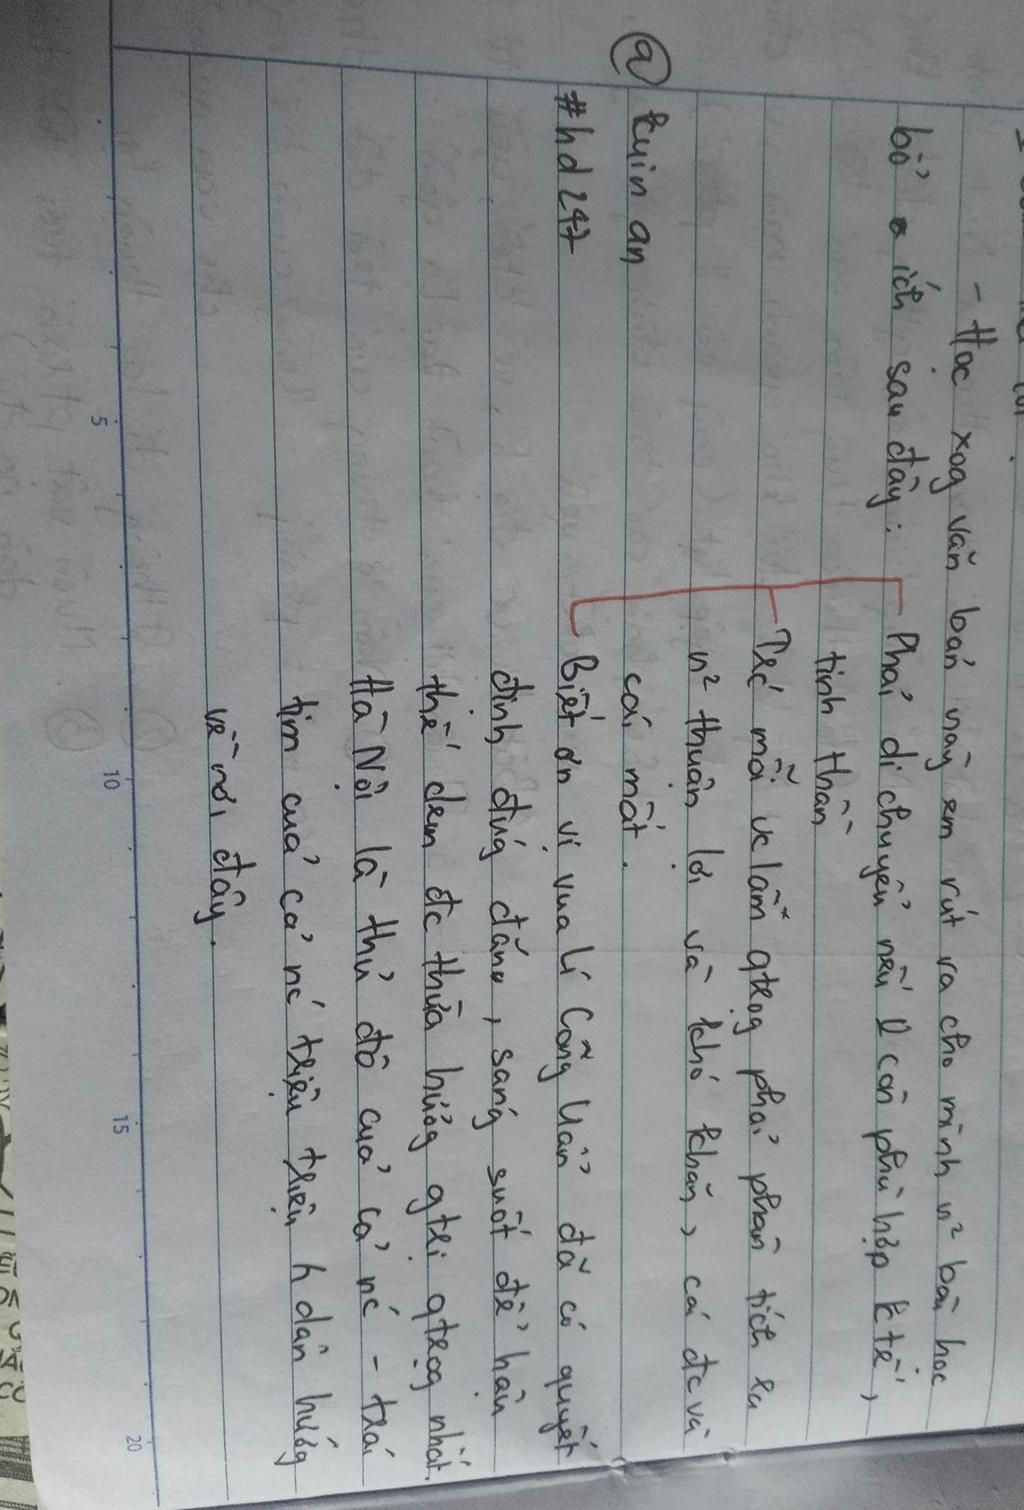 - Học xog văn bản này em rút ra cho mình n² bài học
bổ ích sau đây:
Phải di chuyển nếu k còn phù hợp k tế,
tinh thần
Trc mỗi vc làm qtrog phải phân tích ra
n² thuận lợi và khó khăn, cái đc và
@ tuin an
cái mất.
#hd247
Biết ơn vị vua Lí Công Uẩn đã có quyết
định đúg đắn, sáng suốt để hậu
thế đem đc thừa hưởg gtrị qtrọg nhất.
Hà Nội là thủ đô của cả nc - trái
tim của cả nc triệu triệu h dân hướg
về nơi đây.
5
10
15
20